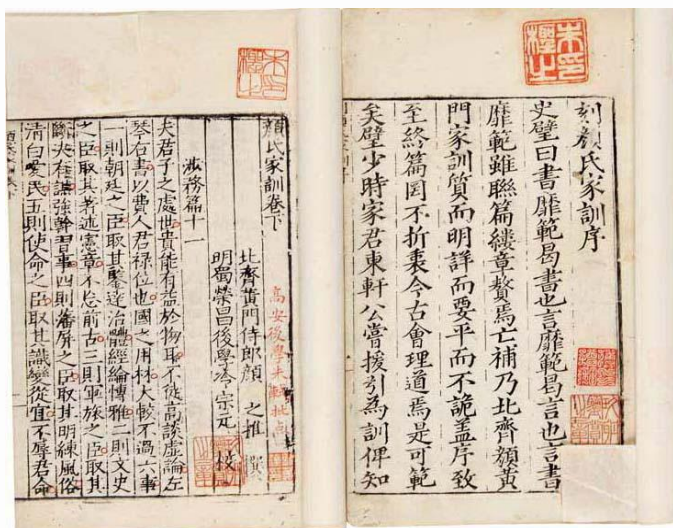 刻顔氏家訓序
史璧曰書靡範曷書也言靡範曷言也言書
靡範雖聯篇縷章贅焉亡補乃北齊顔黄
門家訓質而明詳而要平而不詭盖序致
至終篇罔不折衷今古會理道焉是可範
矣璧少時家君東軒公嘗援引為訓俾知
顔氏家訓卷下
高安後學朱軾批点
北齊黄門侍郎顔之推撰
明蜀榮昌後學泠宗元校
涉務篇十一
夫君子之處世貴能有益於物耳不徒高談虛論左
琴右書以費人君禄位也國之用材大較不過六事
一則朝廷之臣取其鑒達治體經綸博雅二則文史
之臣取其著述憲章不忘前古三則軍旅之臣取其
斷决有謀強幹習事四則藩屏之臣取其明練風俗
清白愛民五則使命之臣取其識變從宜不辱君命